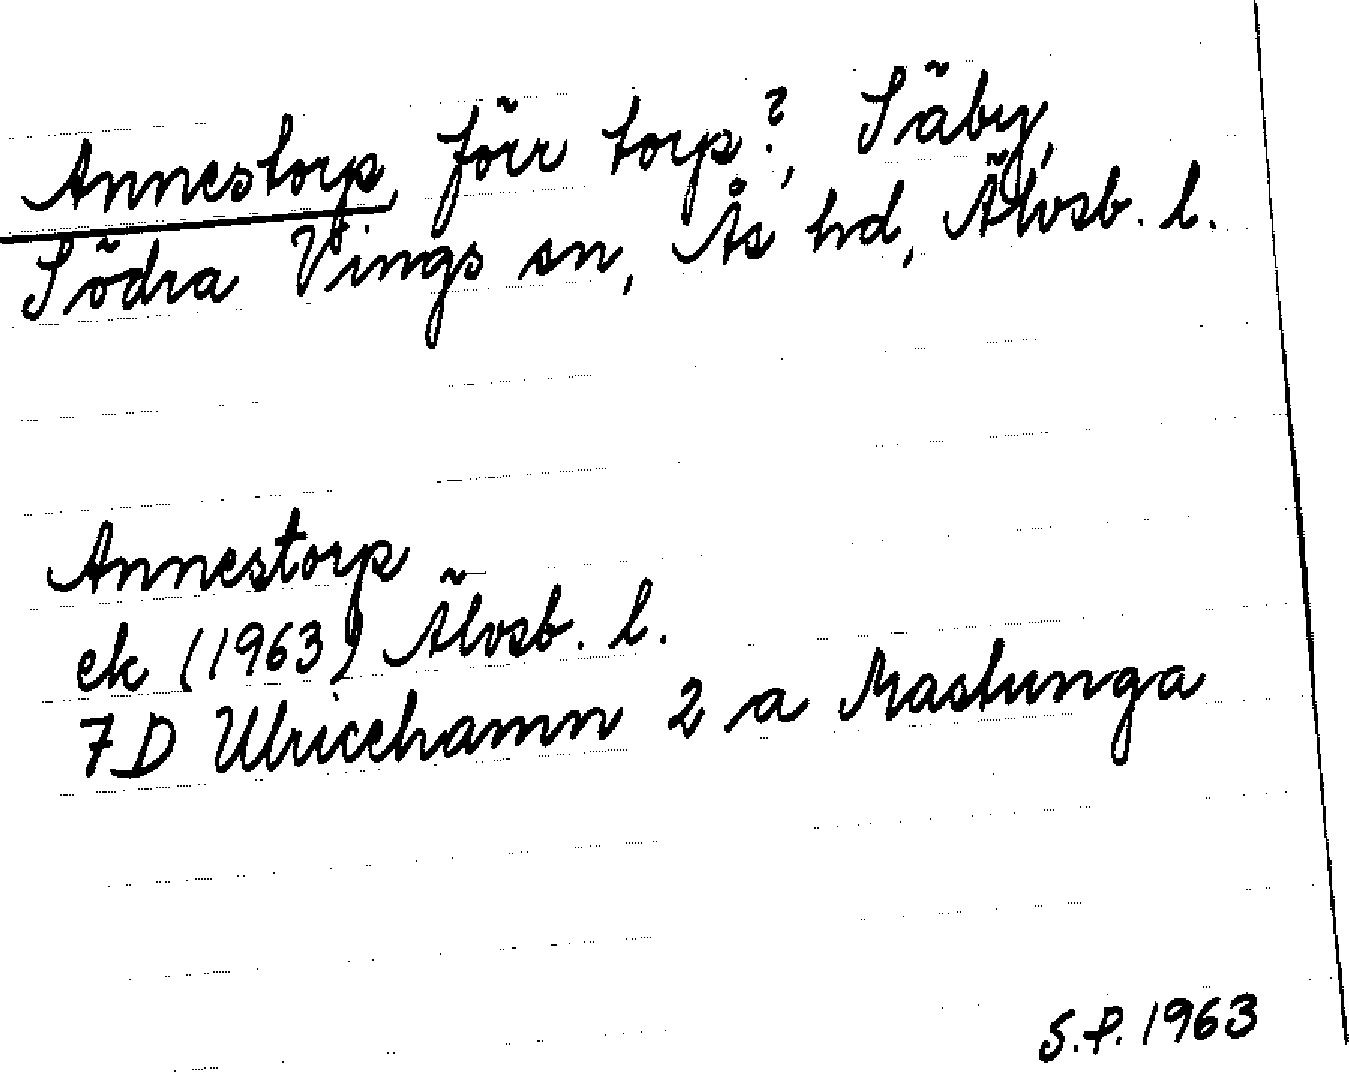 Annestorp, förr torp?, Säby,
Södra Vings sn, Ås hd, Älvsb. l.
Annestorp
ek (1963) Älvsb. l.
7D Ulricehamn 2 a Mastunga
S.P. 1963